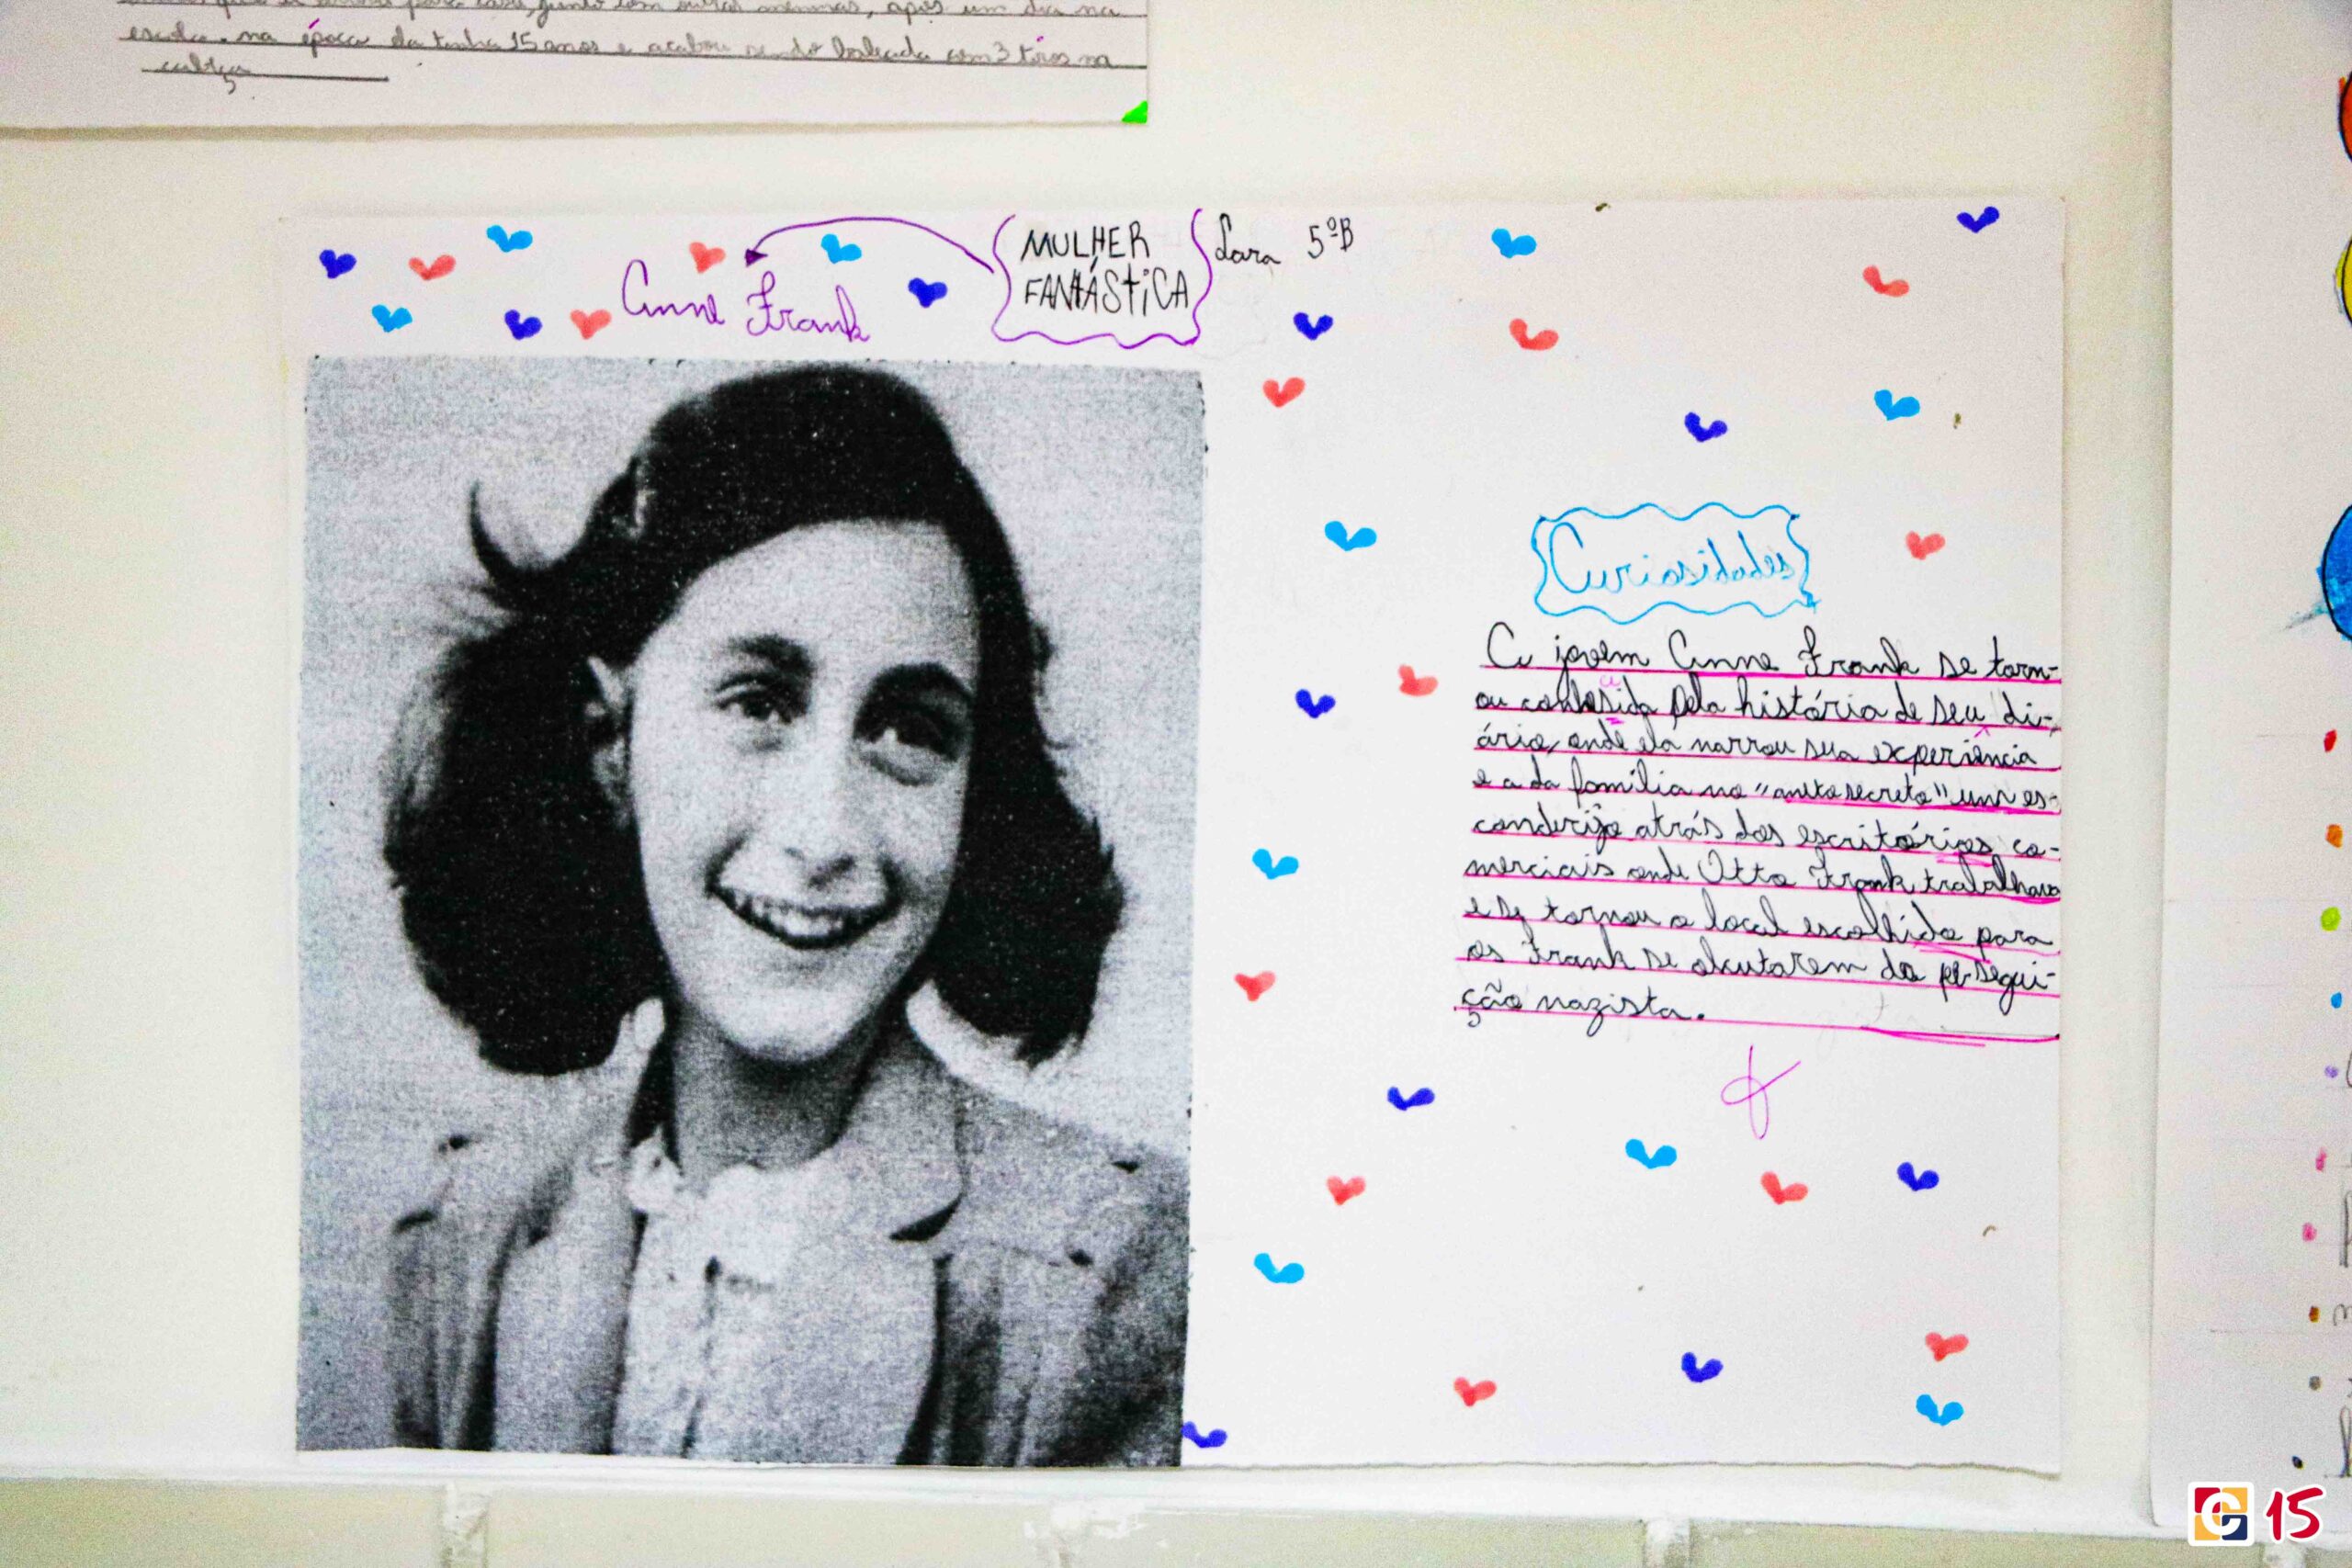 escola. na época ela tinha 15 anos e acabou sendo baleada com 3 tiros na
cabeça
MULHER
FANTÁSTICA
Lara 5ºB
Anne Frank
Curiosidades
A jovem Anne Frank se torn-
ou conhesida pela história de seu di-
ário, onde ela narrou sua experiência
e a da família no "anexo secreto" um es-
conderijo atrás dos escritórios co-
merciais onde Otto Frank trabalhava
e se tornou o local escolhido para
os Frank se ocultarem da persegui-
ção nazista.
15